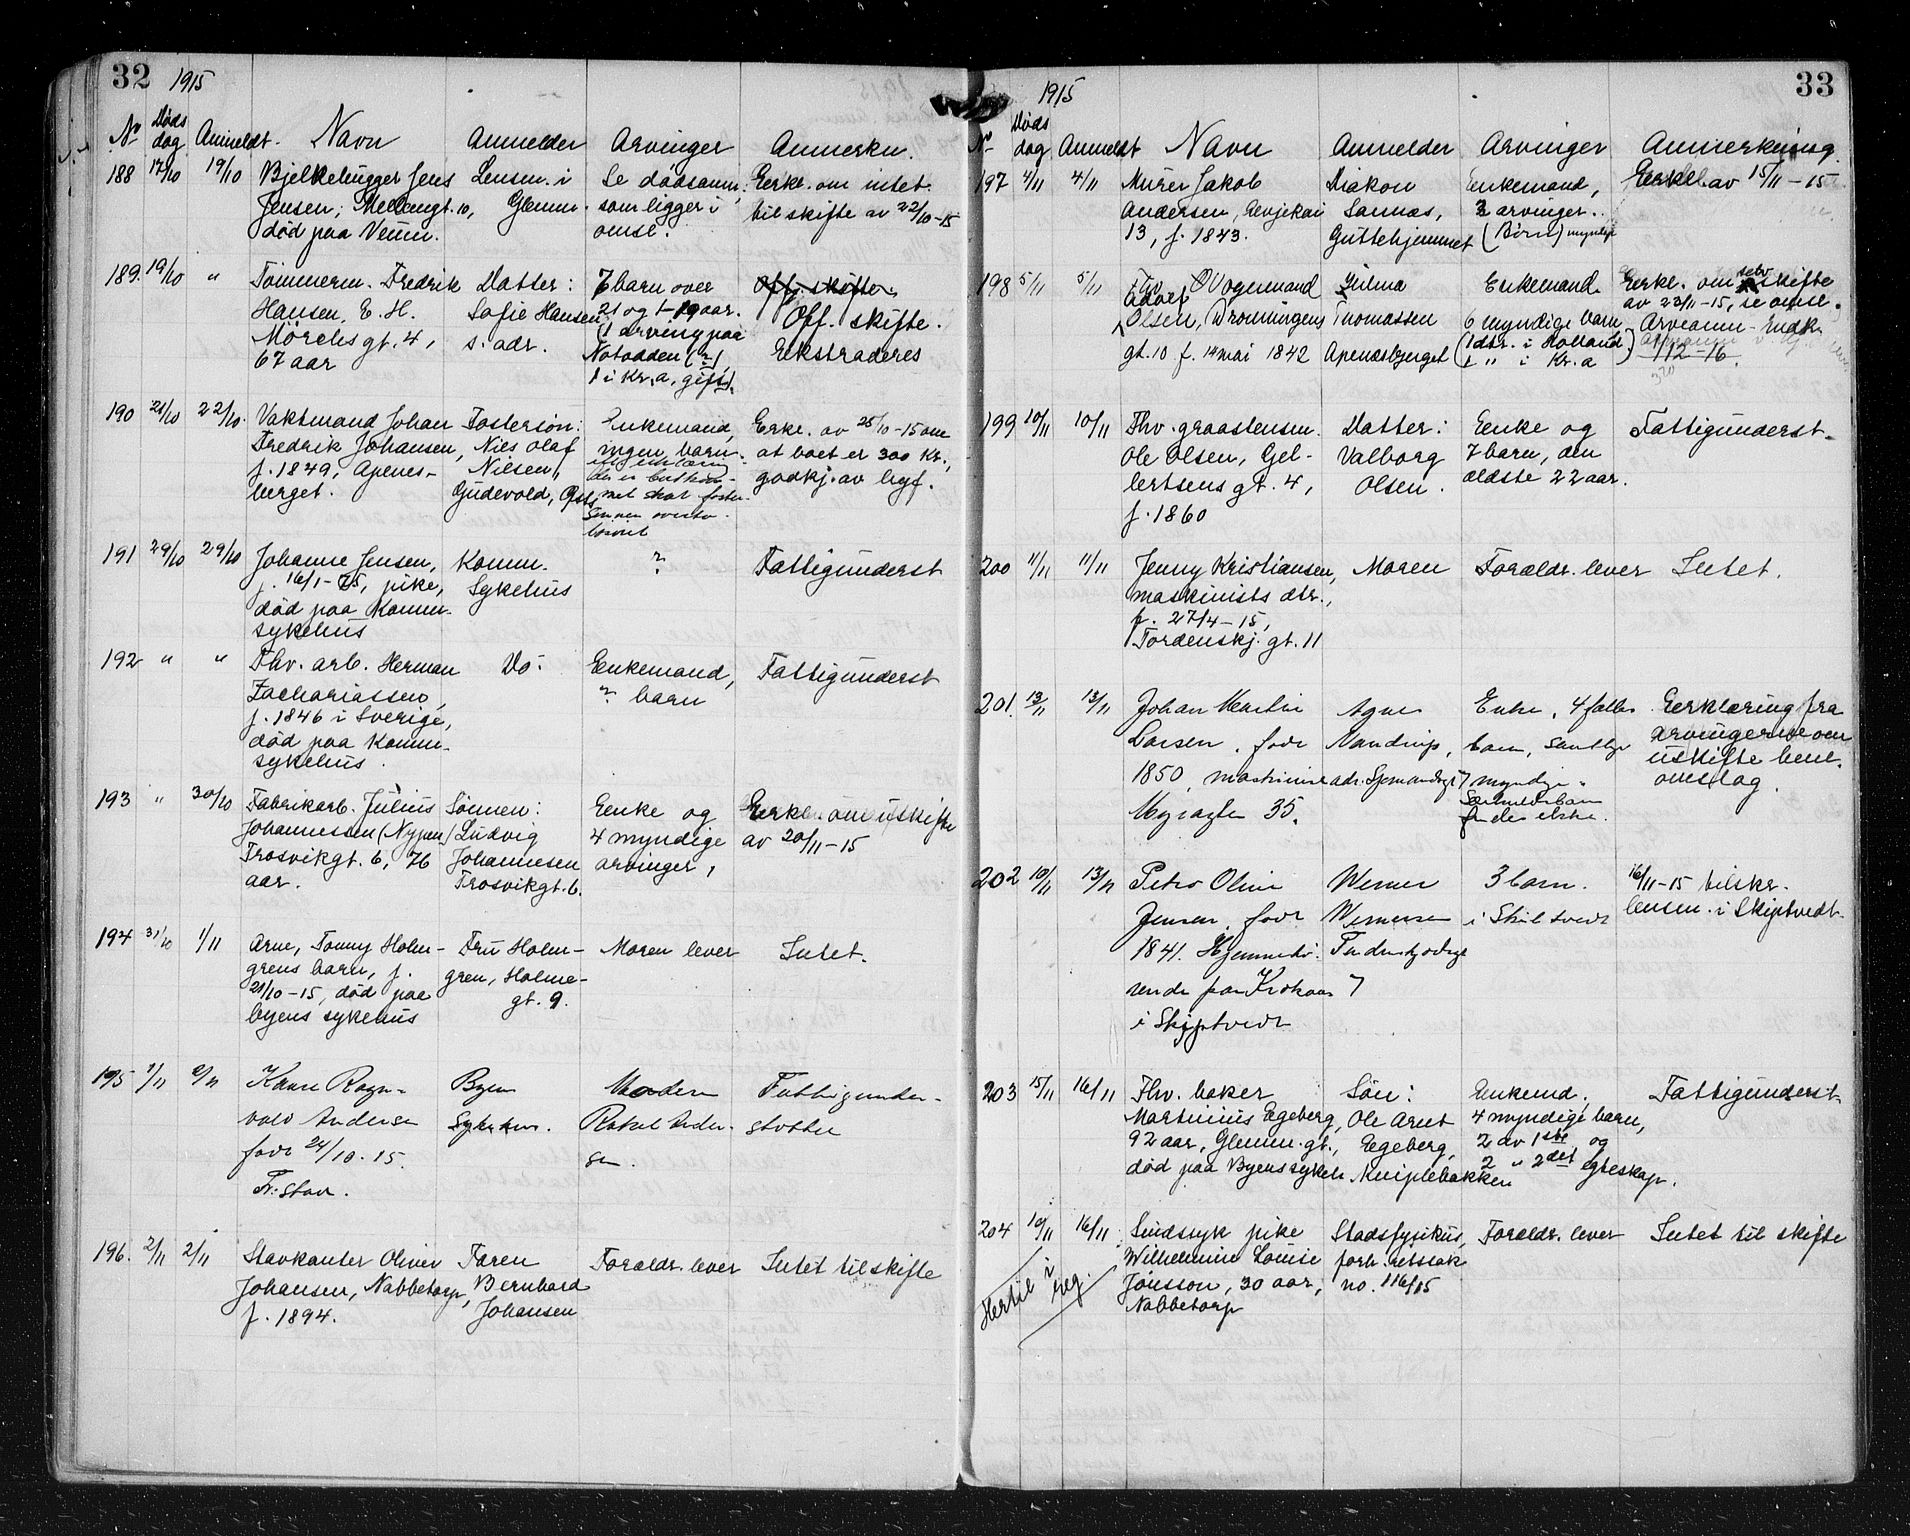 32 1915
No Døds dag Anmeldt. Navn Anmelder Arvinger Anmerkn.
188 17/10 19/10 Bjelkehugger Jens Lensm. i Se dødsanm. Erkl. om intet
Jensen, Mellemgt. 10, Glemm. som ligger i til skifte av 22/10-15
død paa Venm. omsl.
189. 19/10 " Tømmerm. Fredrik Datter: 7 barn over Off. skifte.
Hansen, E. H. Sofie Hansen, 21 og 1-19 aar. Off. skifte.
Mørchs gt. 4, s. adr. (1 arving paa Ekstraderes
67 aar Notodden (?),
1 i Kr.a, gift).
190 21/10 22/10. Vaktmand Johan Fostersøn: Enkemand, Erkl. av 25/10-15 om
Fredrik Johansen, Niels Olaf ingen barn. at boet er 300 Kr.,
f. 1849, Apenes- Nilsen, godkj. av byf.
berget. Gudevold, Østs
191 29/10 29/10 Johanne Jensen, Komm. ? Fattigunderst
f. 16/1-75, pike, Sykehus
død paa Komm.
sykehus
192 " " Fhv. arb. Herman Do: Enkemand, Fattigunderst
Zachariassen, ? barn
f. 1846 i Sverige,
død paa Komm.
sykehus.
193 " 30/10 Fabrikarb. Julius Sønnen: Enke og Erkl. om uskifte
Johannessen (Nypen) Ludvig 4 myndige av 20/11-15
Trosvikgt. 6, 76 Johannesen arvinger,
aar. Trosvikgt. 6.
194 31/10 1/11 Arne, Tomny Holm- Fru Holm- Moren lever Intet.
grens barn, f. gren, Holme-
21/10-15, død paa gt. 9.
byens sykehus
195 1/11 2/11 Kaare Ragn- Byens Moderen Fattigunder-
vald Andersen Sykehus. Rakel Ander- støttet
født 24/10.15. sen.
Fr:stad.
196. 2/11 2/11 Stavkanter Oliver Faren Forældr. lever Intet til skifte
Johansen, Nabbetorp, Bernhard
f. 1894. Johansen
1915 33
No Døds dag Anmeldt Navn Anmelder Arvinger Anmerkning.
197 4/11 4/11 Murer Jakob Diakon Enkemand, Erkl. av 15/11-15
Andersen, Sannæs, 2 arvinger.
13, f. 1843. Guttehjemmet (Børn) myndige
198 5/11 5/11 Fhv. Vognmand Hilma Enkemand. Erkl. om selvskifte
Adolf av 23/11-15, se omsl.
Olsen, Dronningens Thomassen 6 myndige barn Arveanm.
gt. 10 f. 14 mai 1842 Apenæsbjerget (1 dtr. i Holland 1/12-16.
1 " i Kr.a)
199 10/11 10/11 Fhv. graastensm. Datter: Enke og Fattigunderst.
Ole Olsen, Gel- Valborg 7 barn, den
lertsens gt. 4, Olsen. ældste 22 aar.
f. 1860
200 11/11 11/11 Jenny Kristiansen, Moren Forældr. lever Intet.
maskinists dtr.,
f. 27/4-15,
Tordenskj. gt. 11
201. 13/11 13/11 Johan Martin Agnes Enke, 4 fælles Erklæring fra
Larsen, født Nandrup, barn, samtlige arvingerne om
1850, maskinist myndige. uskifte heni
Særkulsbarn omslag.
35. findes ikke.
202 10/11 13/11 Petra Oline Werner 3 barn. 16/11-15 tilskr.
Jensen, født Wernersen i Skiptvedt lensm. i Skiptvedt.
1841. Hjemmehø- Tordenskjoldsgt
rende paa Krokaas 7
i Skiptvedt
203 15/11 16/11 Fhv. baker Søn: Enkemd, Fattigunderst.
Martinius Egeberg, Ole Arnt 4 myndige barn,
92 aar, Glemm. gt., Egeberg, 2 av 1ste og
død paa Byens sykeh. Kniplebakken 2 " 2det egteskap.
204 10/11 16/11 Sindssyk pike Stadsfysikus, Forældr. lever Intet til skifte
Wilhelmine Louise forh. retssak
Jonsson, 30 aar, no. 116/15
Nabbetorp
Hertil i reg.